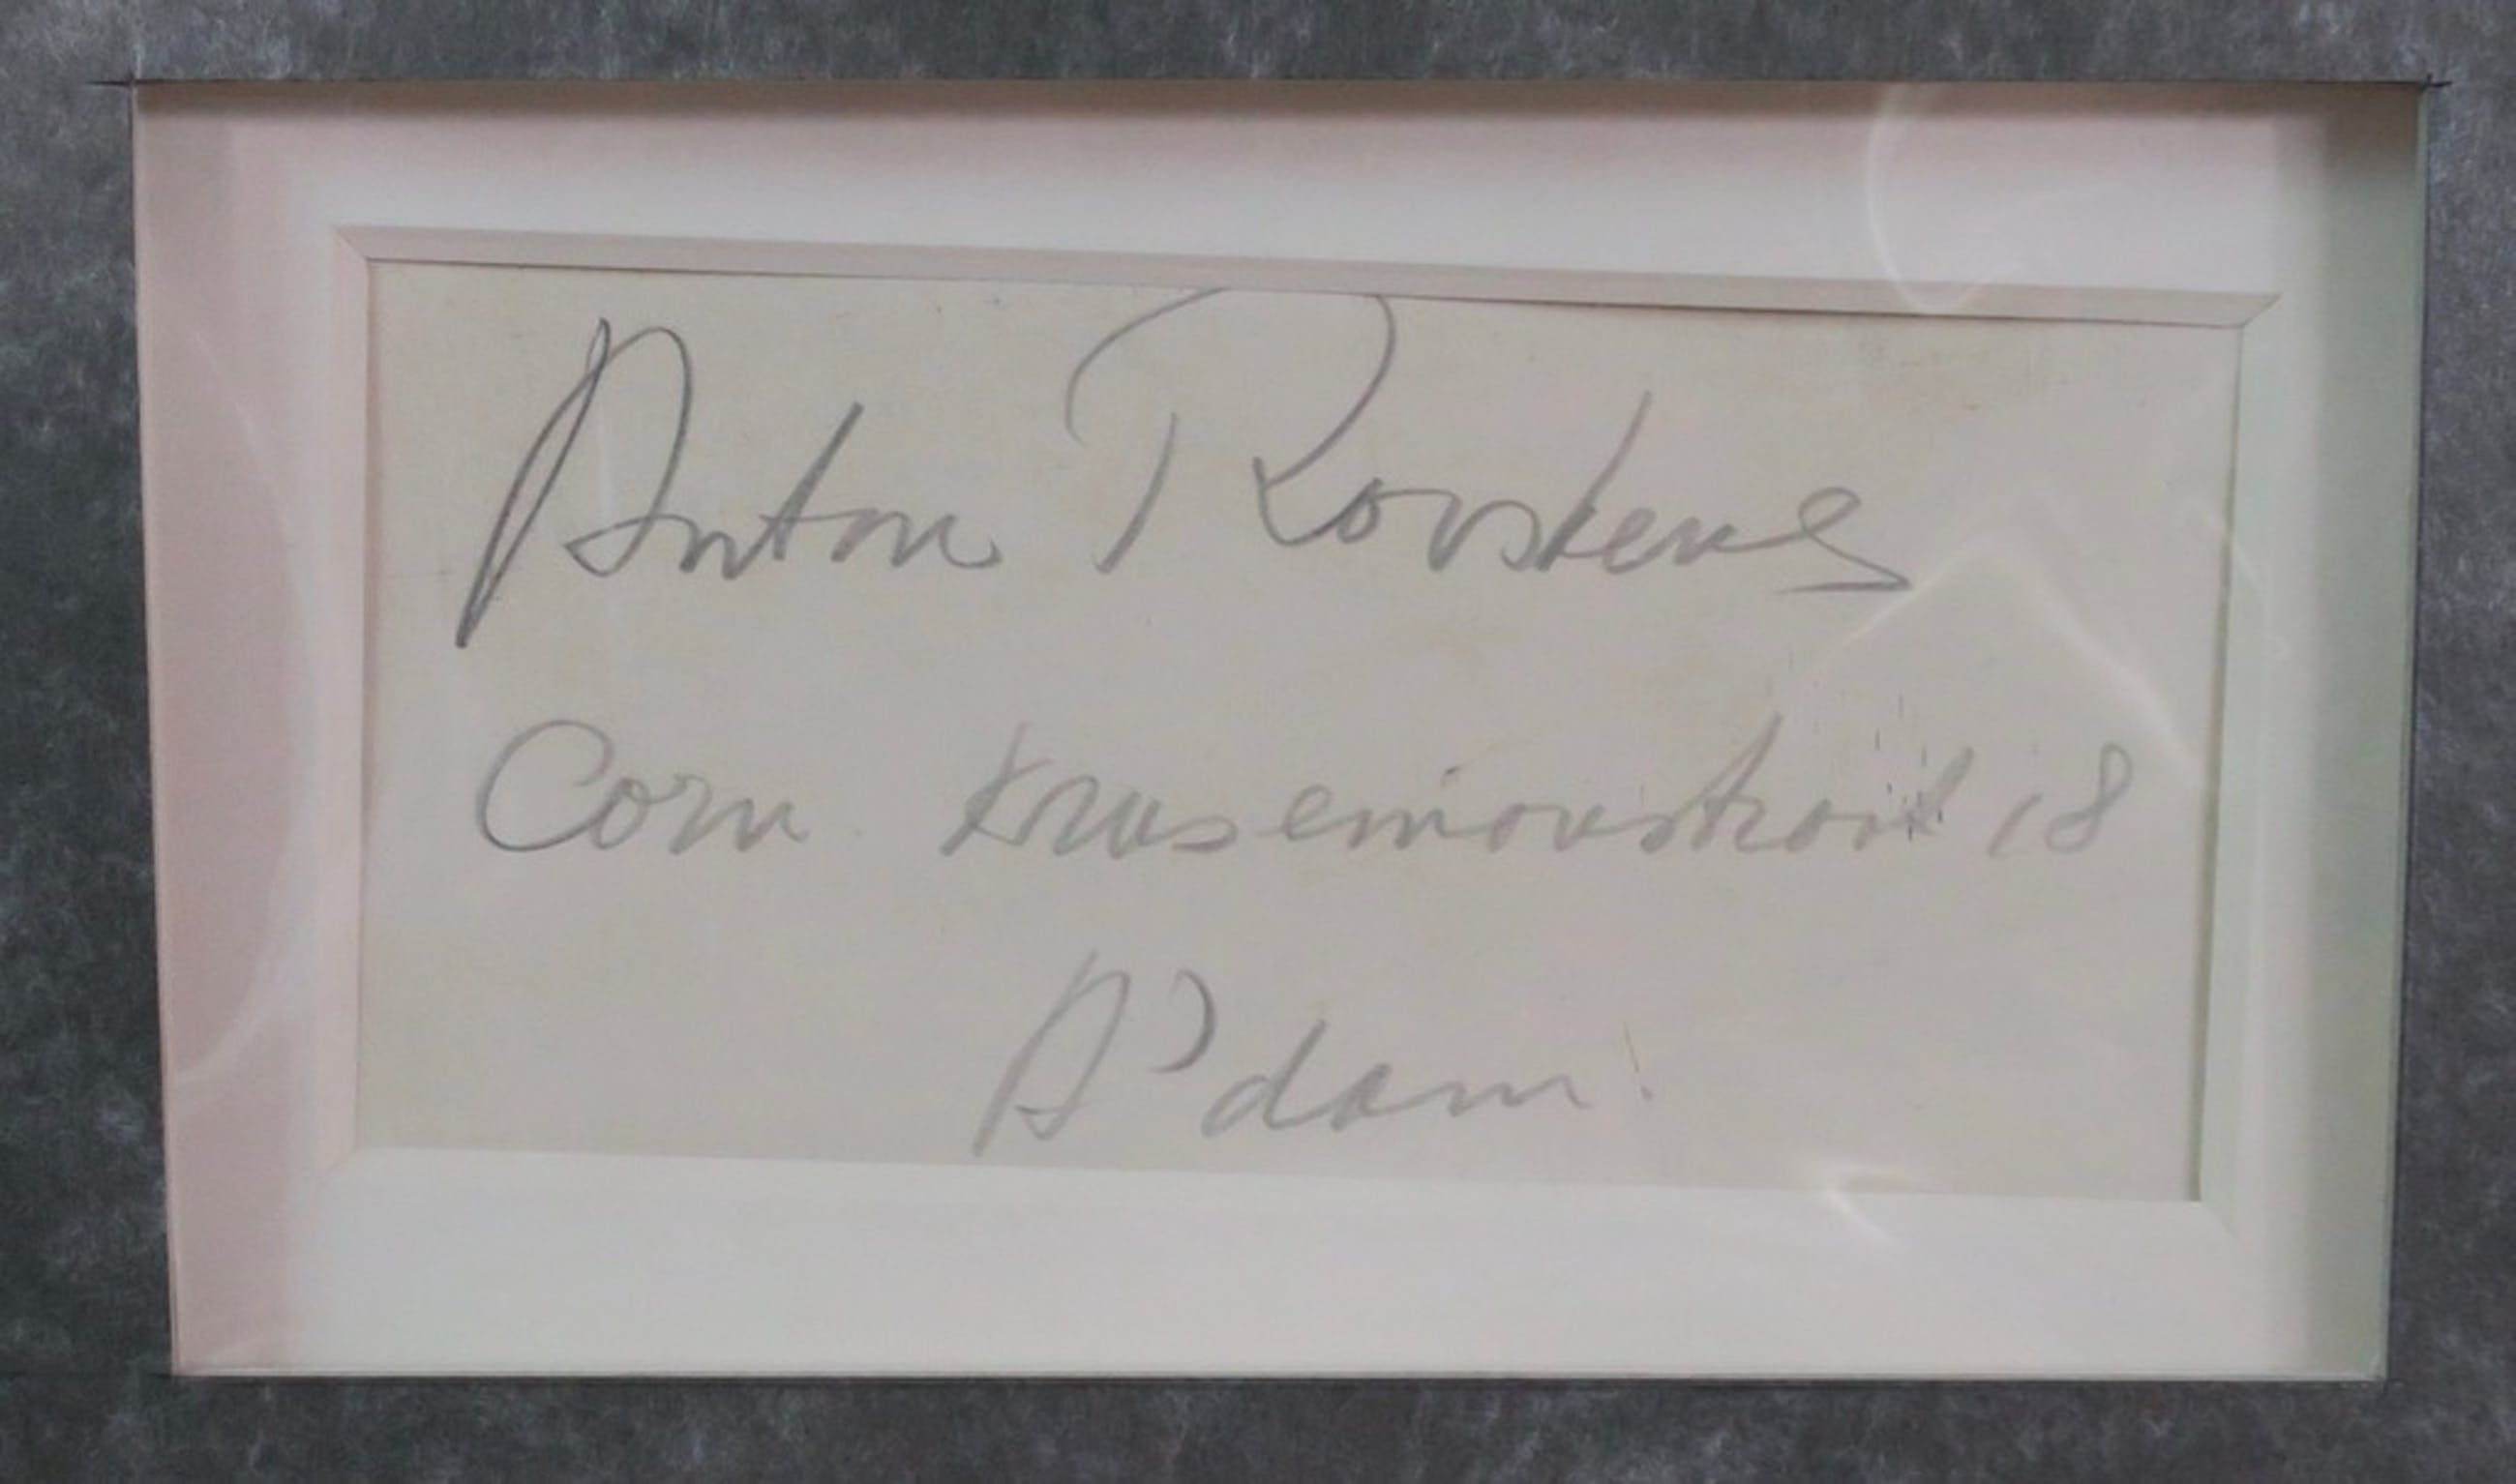 Anton Rooskens
Corn Krusemanstraat 18
A'dam.